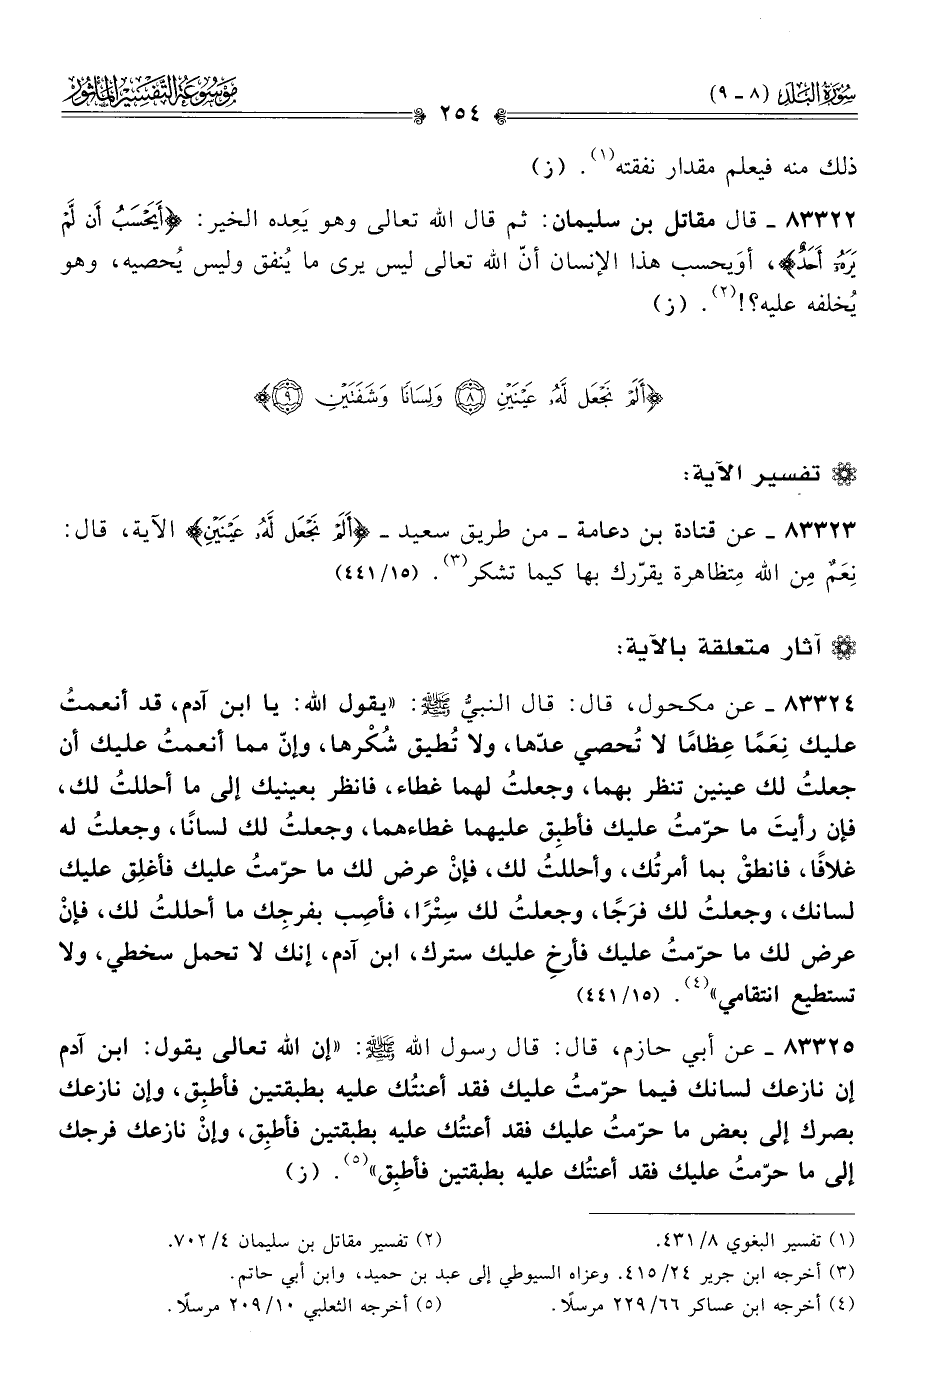 سورة البلد (٨ - ٩)
٢٥٤
موسوعة التفسير المأثور
ذلك منه فيعلم مقدار نفقته(١). (ز)
٨٣٣٢٢ - قال مقاتل بن سليمان: ثم قال الله تعالى وهو يَعِده الخير: ﴿أَيَحْسَبُ أَن لَّمْ
يَرَهُۥٓ أَحَدٌ﴾، أوَيحسب هذا الإنسان أنّ الله تعالى ليس يرى ما يُنفق وليس يُحصيه، وهو
يُخلفه عليه؟!(٢). (ز)
﴿أَلَمْ نَجْعَل لَّهُۥ عَيْنَيْنِ ٨ وَلِسَانًا وَشَفَتَيْنِ ٩﴾
تفسير الآية:
٨٣٣٢٣ - عن قتادة بن دعامة - من طريق سعيد - ﴿أَلَمْ نَجْعَل لَّهُۥ عَيْنَيْنِ﴾ الآية، قال:
نِعَمٌ مِن الله مِتظاهرة يقرّرك بها كيما تشكر(٣). (٤٤١/١٥)
آثار متعلقة بالآية:
٨٣٣٢٤ - عن مكحول، قال: قال النبيُّ ﷺ: «يقول الله: يا ابن آدم، قد أنعمتُ
عليك نِعَمًا عِظامًا لا تُحصي عدّها، ولا تُطيق شُكْرها، وإنّ مما أنعمتُ عليك أن
جعلتُ لك عينين تنظر بهما، وجعلتُ لهما غطاء، فانظر بعينيك إلى ما أحللتُ لك،
فإن رأيتَ ما حرّمتُ عليك فأطبِق عليهما غطاءهما، وجعلتُ لك لسانًا، وجعلتُ له
غلافًا، فانطقْ بما أمرتُك، وأحللتُ لك، فإنْ عرض لك ما حرّمتُ عليك فأغلِق عليك
لسانك، وجعلتُ لك فرَجًا، وجعلتُ لك سِتْرًا، فأصِب بفرجِك ما أحللتُ لك، فإنْ
عرض لك ما حرّمتُ عليك فأرخِ عليك سترك، ابن آدم، إنك لا تحمل سخطي، ولا
تستطيع انتقامي»(٤). (٤٤١/١٥)
٨٣٣٢٥ - عن أبي حازم، قال: قال رسول الله ﷺ: «إن الله تعالى يقول: ابن آدم
إن نازعك لسانك فيما حرّمتُ عليك فقد أعنتُك عليه بطبقتين فأطبِق، وإن نازعك
بصرك إلى بعض ما حرّمتُ عليك فقد أعنتُك عليه بطبقتين فأطبِق، وإنْ نازعك فرجك
إلى ما حرّمتُ عليك فقد أعنتُك عليه بطبقتين فأطبِق»(٥). (ز)
(١) تفسير البغوي ٤٣١/٨. (٢) تفسير مقاتل بن سليمان ٧٠٢/٤.
(٣) أخرجه ابن جرير ٤١٥/٢٤. وعزاه السيوطي إلى عبد بن حميد، وابن أبي حاتم.
(٤) أخرجه ابن عساكر ٢٢٩/٦٦ مرسلًا. (٥) أخرجه الثعلبي ٢٠٩/١٠ مرسلًا.